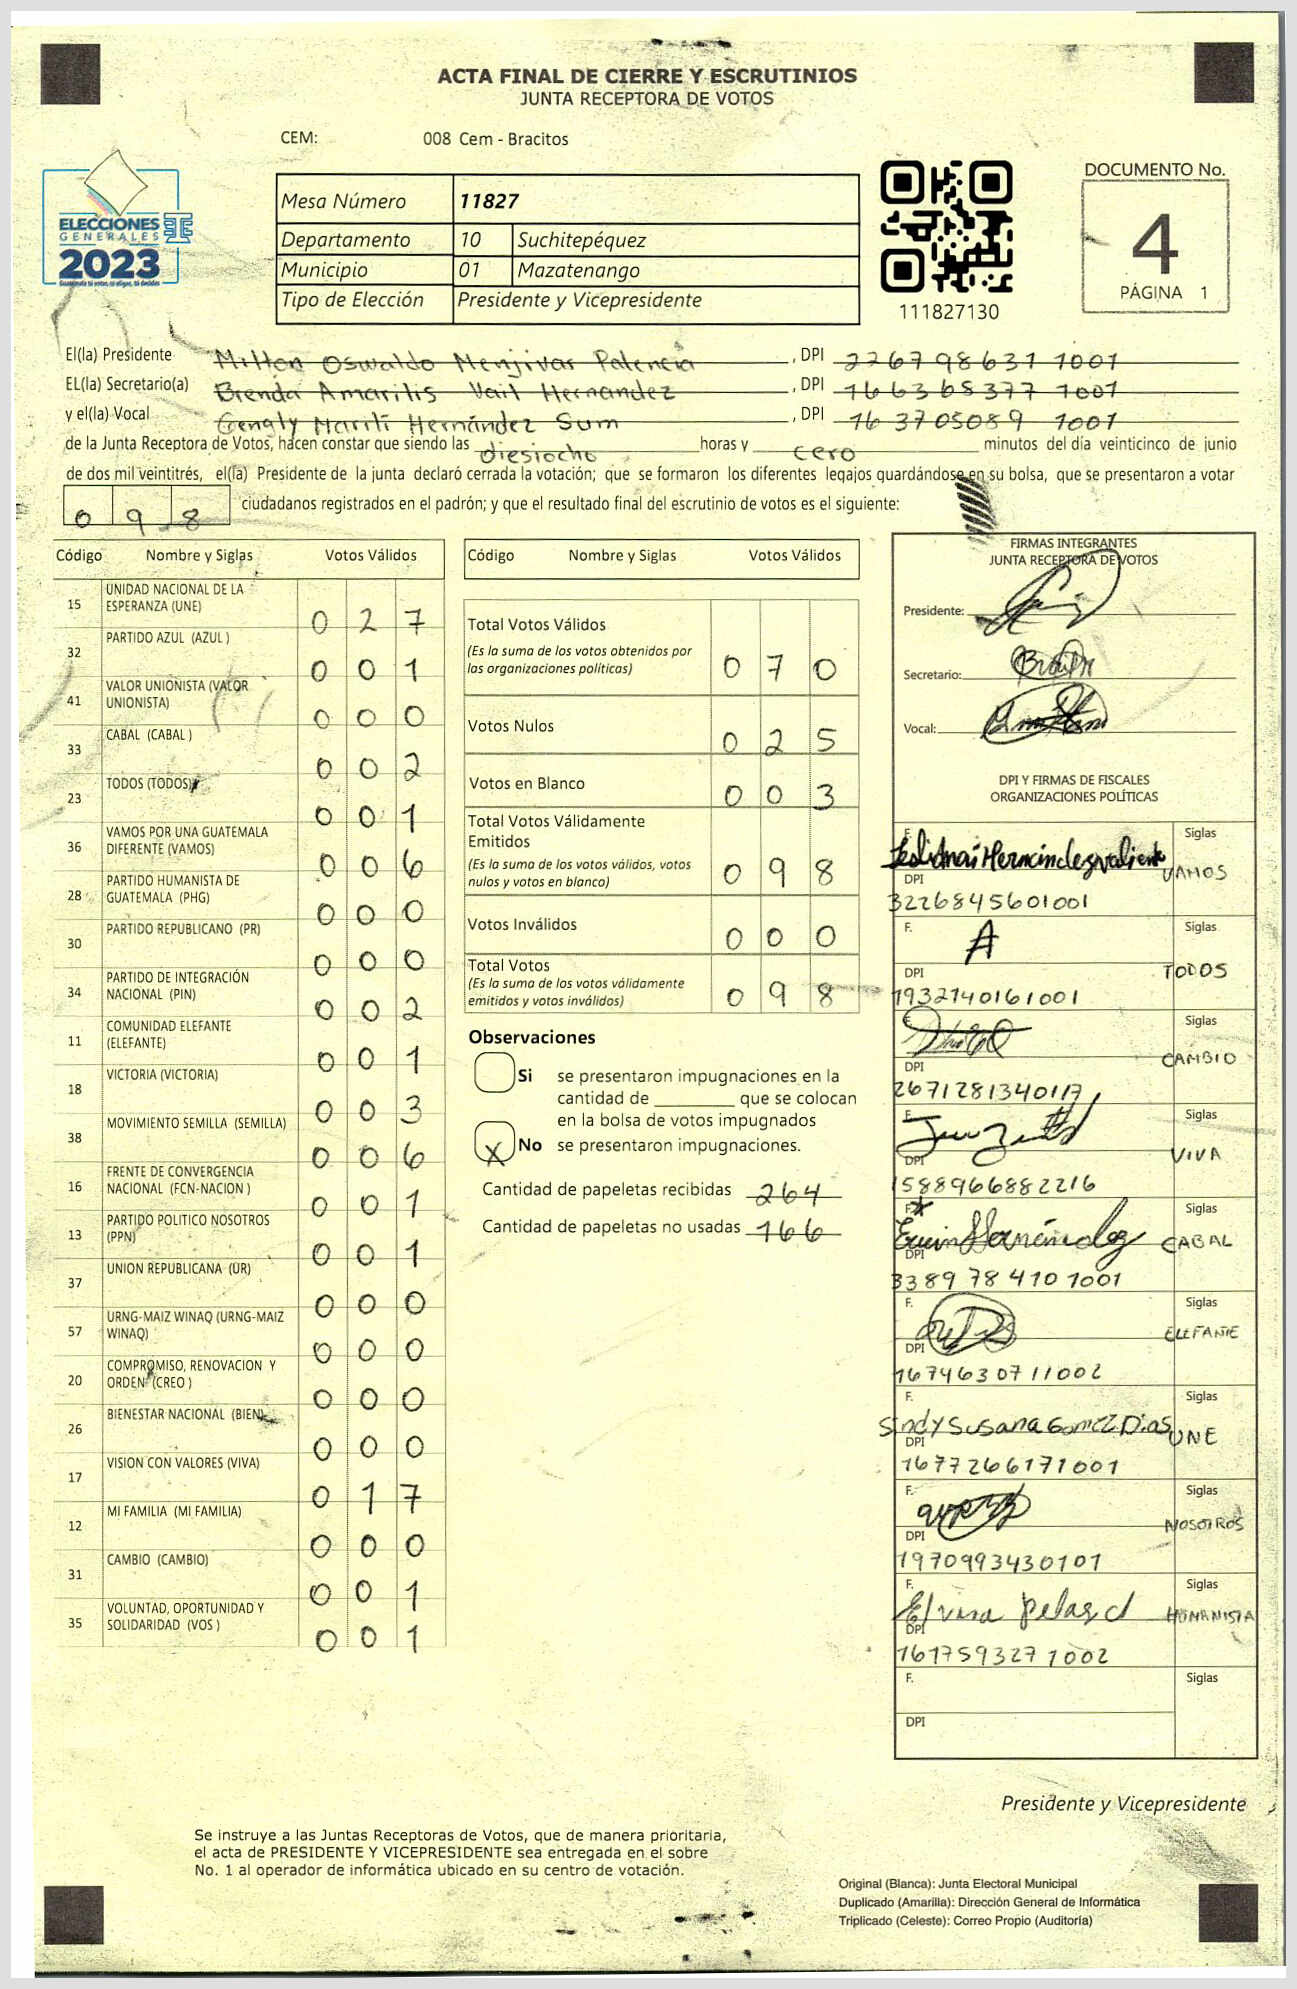 ACTA FINAL DE CIERRE Y ESCRUTINIOS
JUNTA RECEPTORA DE VOTOS
CEM: 008 Cem - Bracitos
ELECCIONES
GENERALES
2023
Mesa Número 11827
Departamento 10 Suchitepéquez
Municipio 01 Mazatenango
Tipo de Elección Presidente y Vicepresidente
111827130
DOCUMENTO No.
4
PÁGINA 1
El(la) Presidente Milton Oswaldo Menjivar Palencia, DPI 226798631 1001
EL(la) Secretario(a) Brenda Amarilis Vail Hernandez, DPI 166368377 1001
y el(la) Vocal Hernández Sum, DPI 163705089 1001
de la Junta Receptora de Votos, hacen constar que siendo las diesiocho horas y cero minutos del día veinticinco de junio
de dos mil veintitrés, el(la) Presidente de la junta declaró cerrada la votación; que se formaron los diferentes legajos guardándose en su bolsa, que se presentaron a votar
098 ciudadanos registrados en el padrón; y que el resultado final del escrutinio de votos es el siguiente:
Código Nombre y Siglas Votos Válidos
15 UNIDAD NACIONAL DE LA ESPERANZA (UNE) 027
32 PARTIDO AZUL (AZUL ) 001
41 VALOR UNIONISTA (VALOR UNIONISTA) 000
33 CABAL (CABAL ) 002
23 TODOS (TODOS) 001
36 VAMOS POR UNA GUATEMALA DIFERENTE (VAMOS) 006
28 PARTIDO HUMANISTA DE GUATEMALA (PHG) 000
30 PARTIDO REPUBLICANO (PR) 000
34 PARTIDO DE INTEGRACIÓN NACIONAL (PIN) 002
11 COMUNIDAD ELEFANTE (ELEFANTE) 001
18 VICTORIA (VICTORIA) 003
38 MOVIMIENTO SEMILLA (SEMILLA) 006
16 FRENTE DE CONVERGENCIA NACIONAL (FCN-NACION ) 001
13 PARTIDO POLITICO NOSOTROS (PPN) 001
37 UNION REPUBLICANA (UR) 000
57 URNG-MAIZ WINAQ (URNG-MAIZ WINAQ) 000
20 COMPROMISO, RENOVACION Y ORDEN (CREO ) 000
26 BIENESTAR NACIONAL (BIEN) 000
17 VISION CON VALORES (VIVA) 017
12 MI FAMILIA (MI FAMILIA) 000
31 CAMBIO (CAMBIO) 001
35 VOLUNTAD, OPORTUNIDAD Y SOLIDARIDAD (VOS ) 001
Código Nombre y Siglas Votos Válidos
Total Votos Válidos 070
(Es la suma de los votos obtenidos por
las organizaciones políticas)
Votos Nulos 025
Votos en Blanco 003
Total Votos Válidamente
Emitidos 098
(Es la suma de los votos válidos, votos
nulos y votos en blanco)
Votos Inválidos 000
Total Votos 098
(Es la suma de los votos válidamente
emitidos y votos inválidos)
Observaciones
Si se presentaron impugnaciones en la
cantidad de ________ que se colocan
en la bolsa de votos impugnados
X No se presentaron impugnaciones.
Cantidad de papeletas recibidas 264
Cantidad de papeletas no usadas 166
FIRMAS INTEGRANTES
JUNTA RECEPTORA DE VOTOS
Presidente:
Secretario:
Vocal:
DPI Y FIRMAS DE FISCALES
ORGANIZACIONES POLÍTICAS
F. Siglas
DPI VAMOS
3226845601001
F. A Siglas
DPI TODOS
1932740161001
F. Siglas
DPI CAMBIO
2671281340117
F. Siglas
DPI VIVA
1588966882216
F. Erwin Hernández Siglas
DPI CABAL
3389784101001
F. Siglas
DPI ELEFANTE
1674630711002
F. Sindy Susana Gomez Dias Siglas
DPI UNE
1677266171001
F. Siglas
DPI NOSOTROS
1970993430101
F. Elvira Siglas
DPI HUMANISTA
161759327 1002
F. Siglas
DPI
Presidente y Vicepresidente
Se instruye a las Juntas Receptoras de Votos, que de manera prioritaria,
el acta de PRESIDENTE Y VICEPRESIDENTE sea entregada en el sobre
No. 1 al operador de informática ubicado en su centro de votación.
Original (Blanca): Junta Electoral Municipal
Duplicado (Amarilla): Dirección General de Informática
Triplicado (Celeste): Correo Propio (Auditoría)